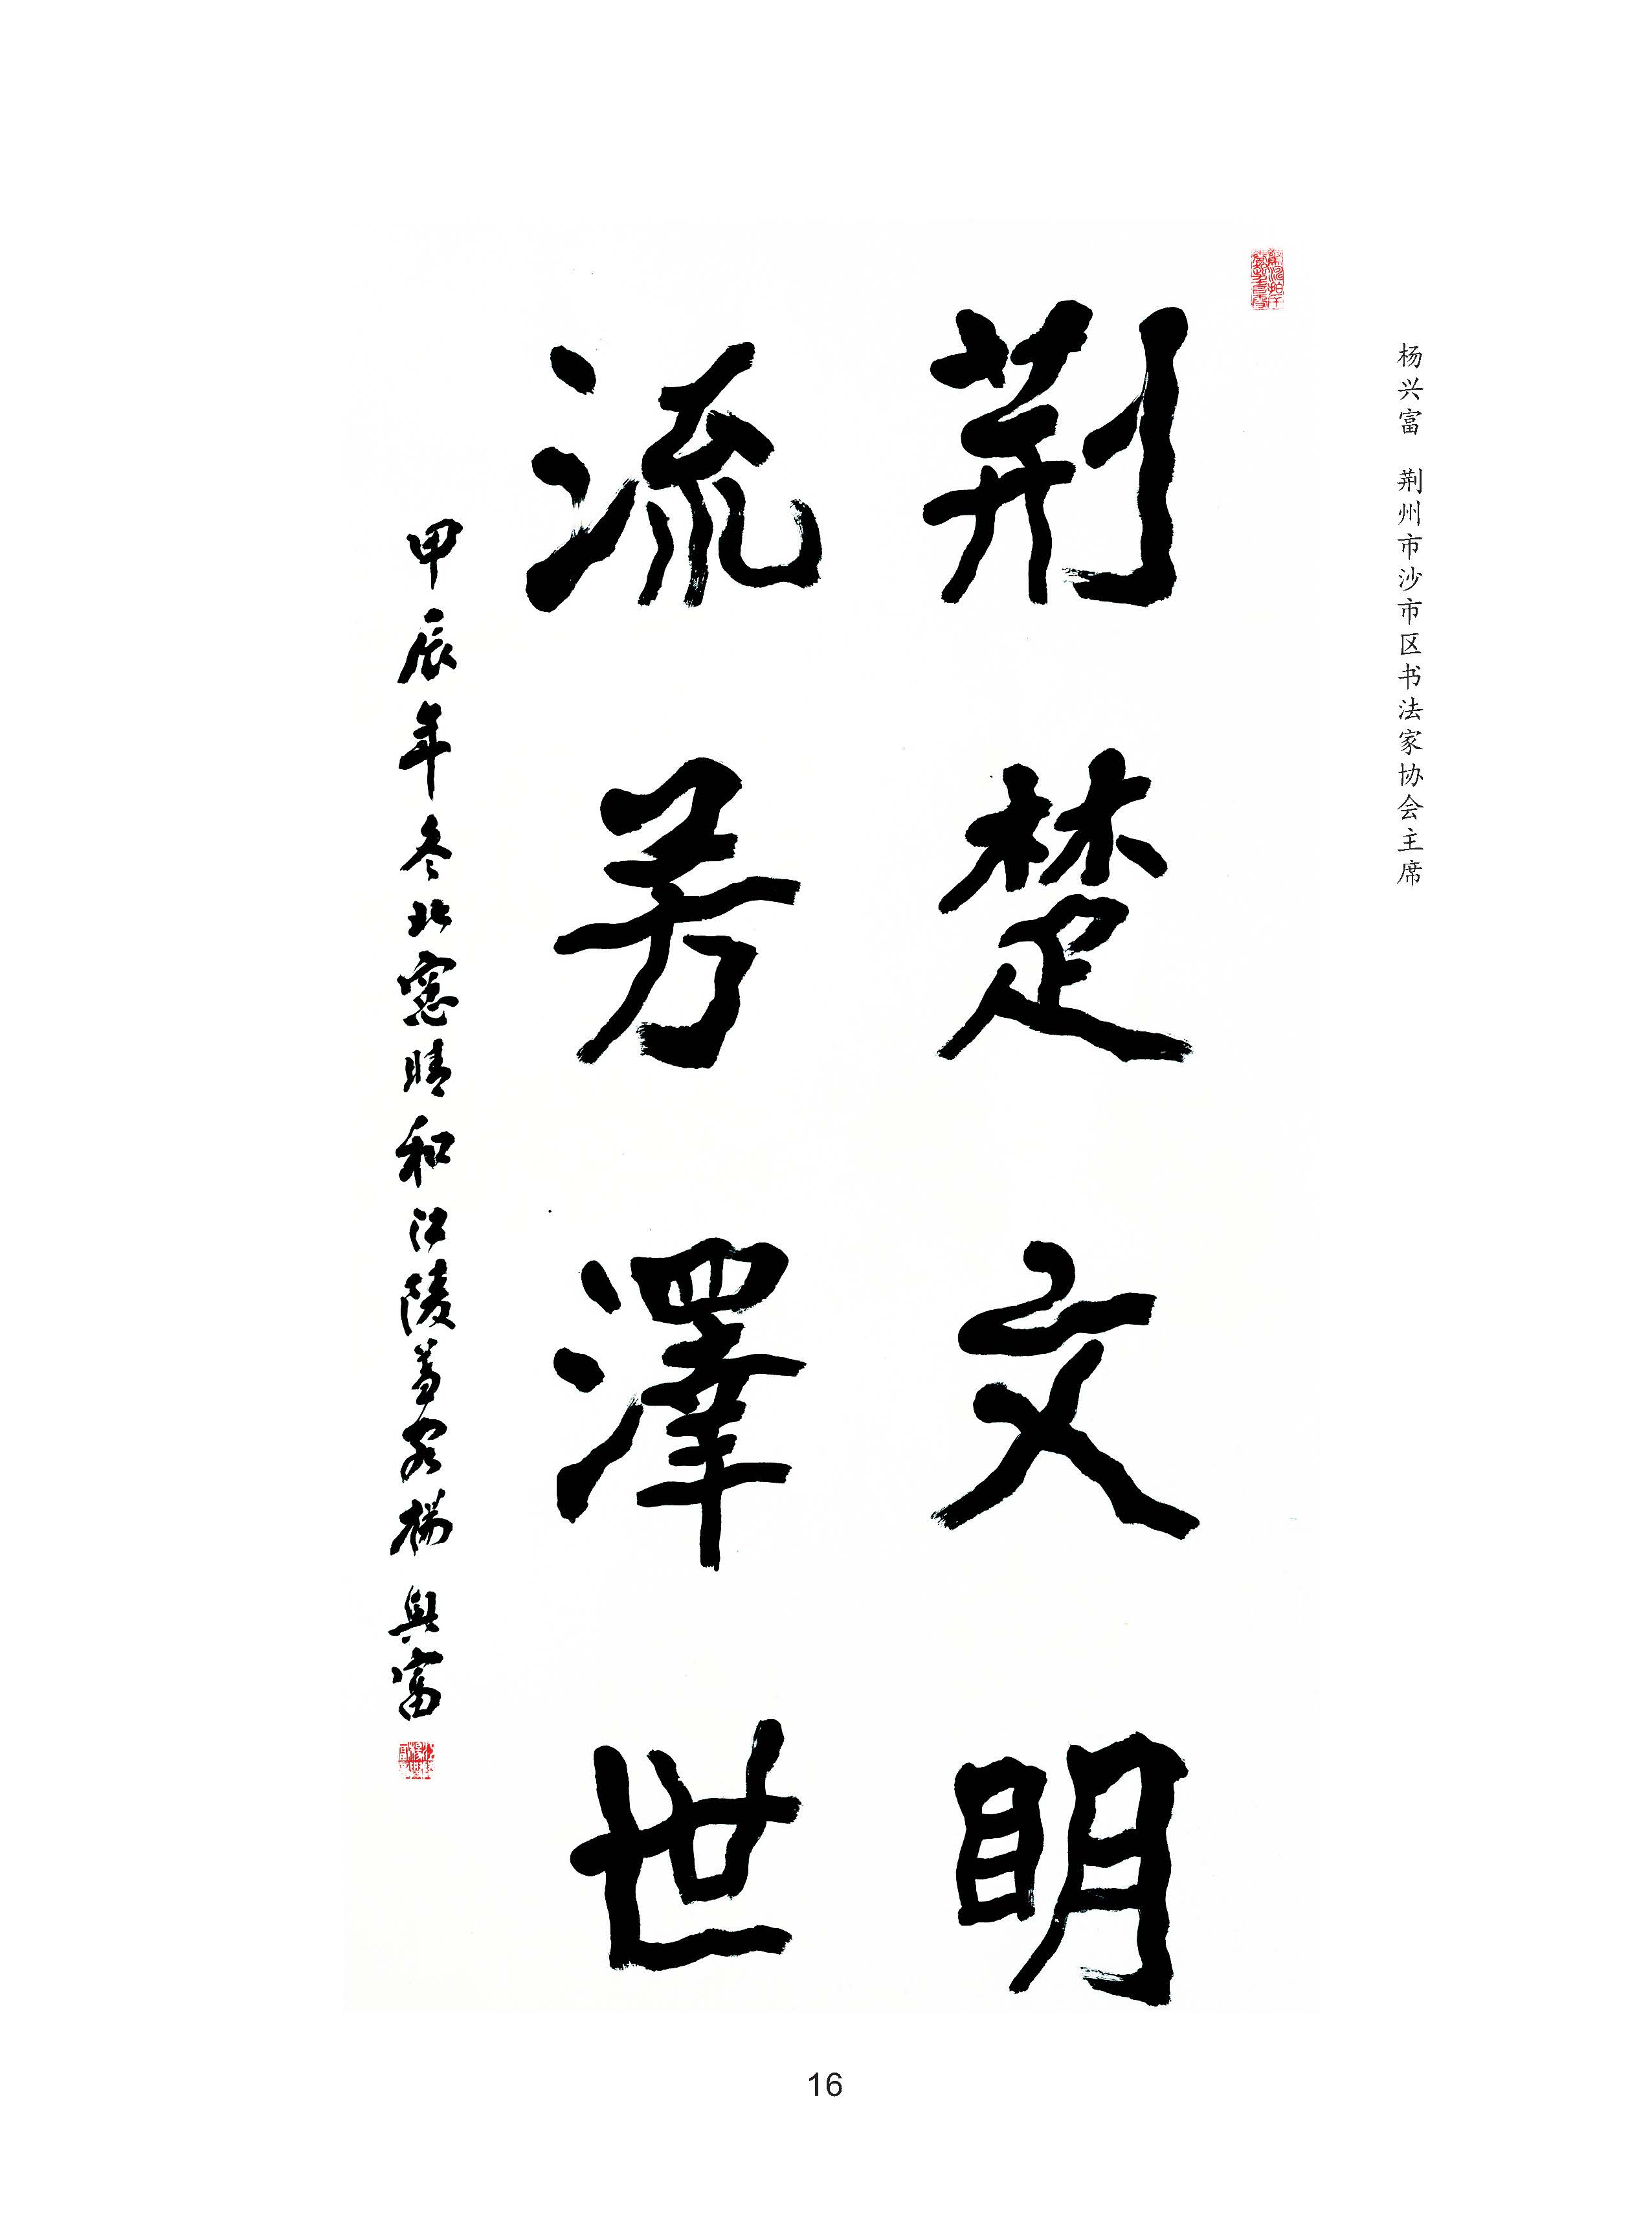 杨兴富 荆州市沙市区书法家协会主席
荆楚文明
流芳澤世
甲辰年冬北窓晴和江陵萬客楊興富
16